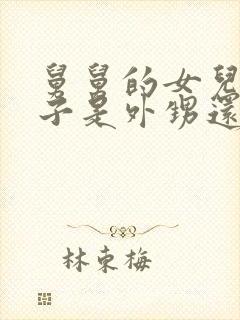 舅舅的女兒
子是外甥還
林東梅